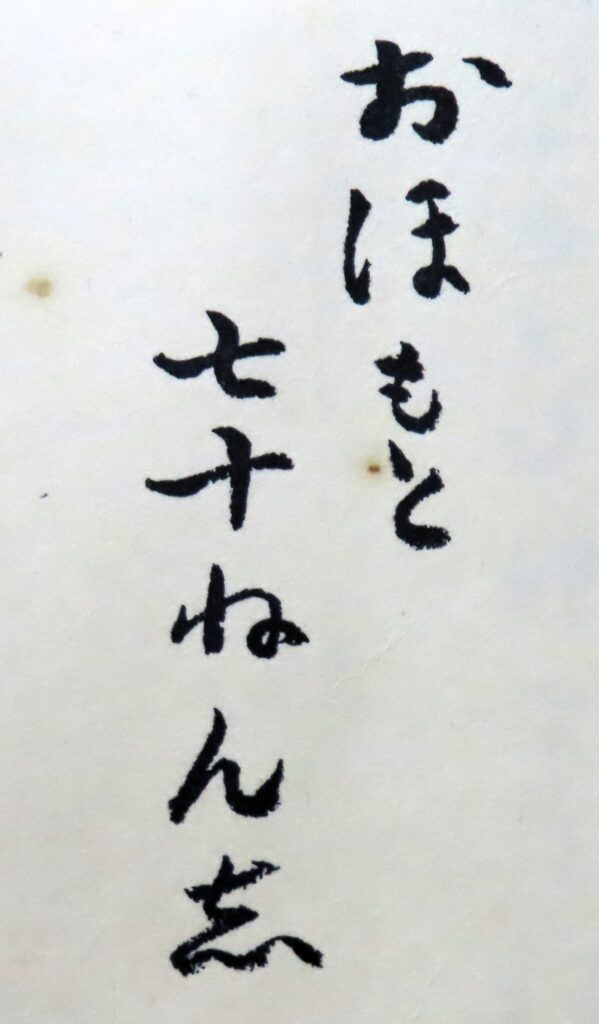 おほもと
七十ねん志